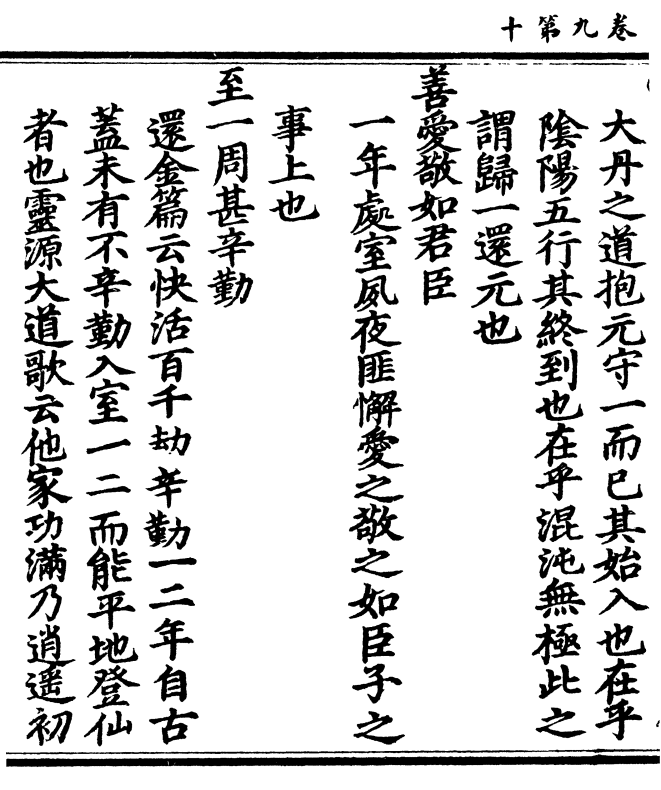 卷九第十
大丹之道抱元守一而已其始入也在乎
陰陽五行其終到也在乎混沌無極此之
謂歸一還元也
善愛敬如君臣
一年處室夙夜匪懈愛之敬之如臣子之
事上也
至一周甚辛勤
還金篇云快活百千劫辛勤一二年自古
蓋未有不辛勤入室一二而能平地登仙
者也靈源大道歌云他家功滿乃逍遥初